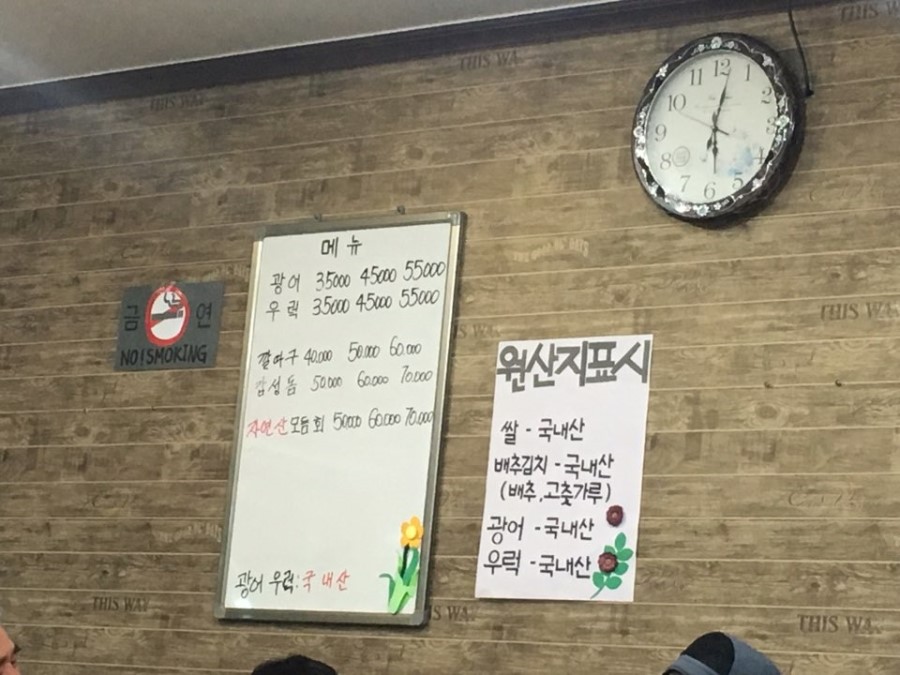 메뉴
광어 35000 45000 55000
우럭 35000 45000 55000
깔따구 40.000 50.000 60.000
감성돔 50.000 60.000 70.000
자연산 모듬회 50.000 60.000 70.000
광어 우럭: 국내산
금연
NO!SMOKING
원산지표시
쌀 - 국내산
배추김치 - 국내산
(배추, 고춧가루)
광어 - 국내산
우럭 - 국내산
12
1
2
3
4
5
6
7
8
9
10
11
THIS WA
THIS WAY
THIS WA
THIS WA
THIS WAY
THIS WA